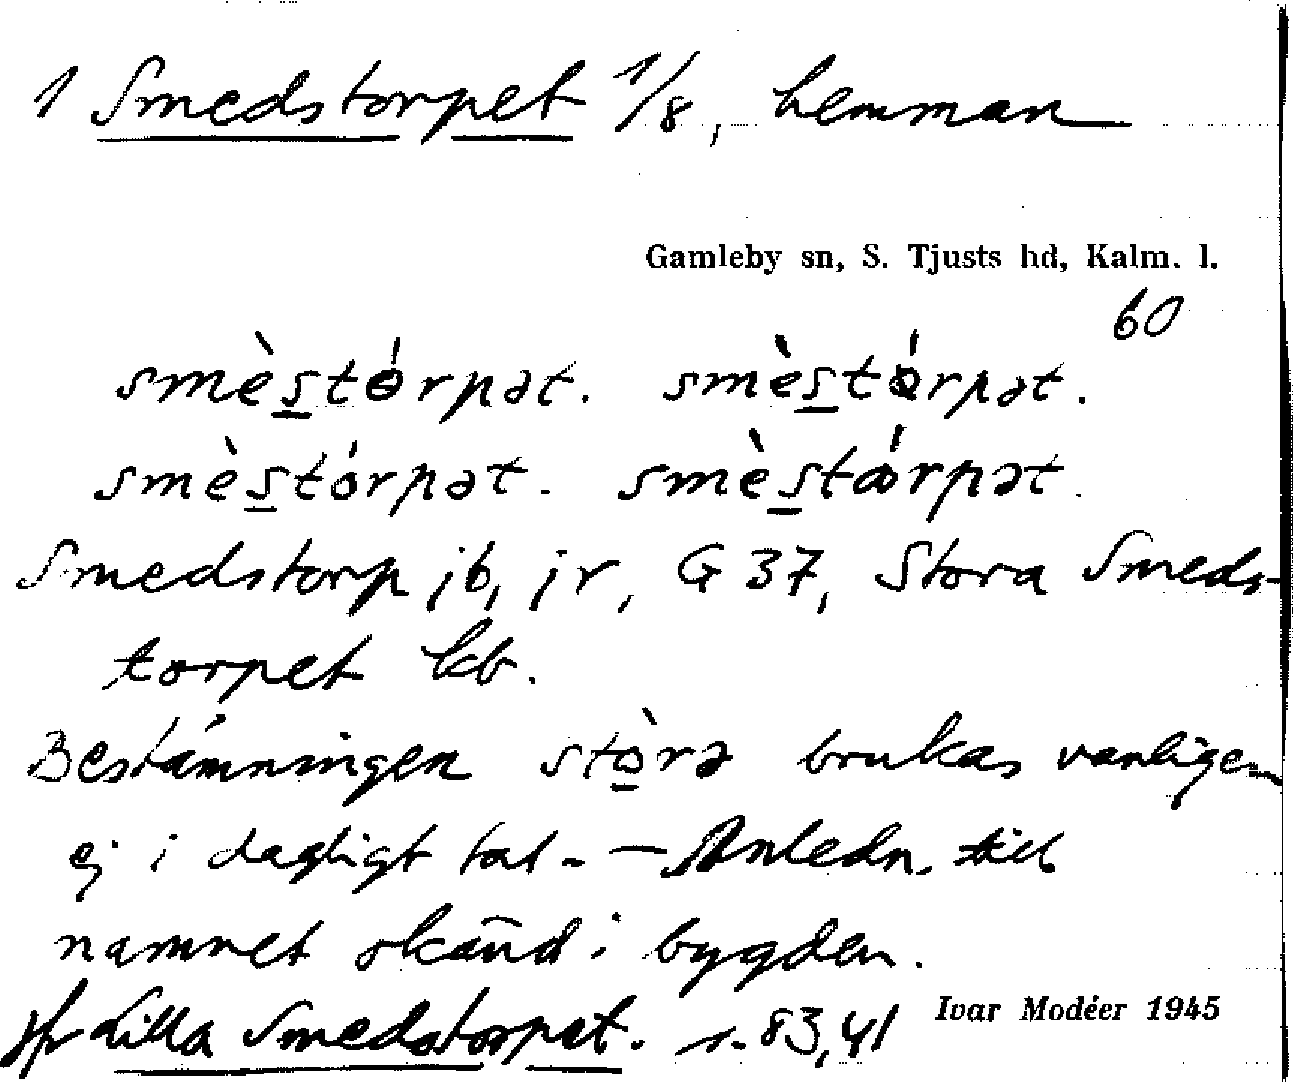 1 Smedstorpet 1/8, hemman
Gamleby sn, S. Tjusts hd, Kalm. l.
60
smès̲tórpət. smès̲tórpət.
smès̲tórpət. smès̲tórpət.
Smedstorp jb, jr, G 37, Stora Smeds-
torpet kb.
Bestämningen stò̲rə brukas vanligen
ej i dagligt tal. — Anledn. till
namnet okänd i bygden.
Jfr Lilla Smedstorpet. s. 83, 41
Ivar Modéer 1945